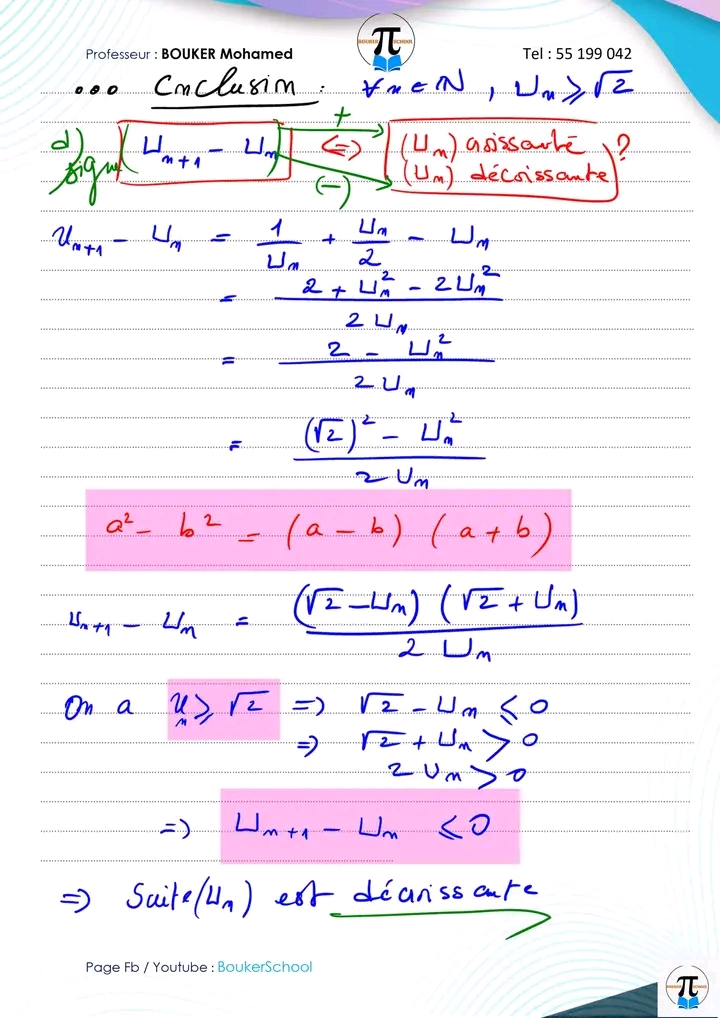 BOUKER π SCHOOL
Professeur : BOUKER Mohamed Tel : 55 199 042
... Cnclusin : ∀n ∈ ℕ , Uₙ ⩾ √2
d) signe (Uₙ₊₁ - Uₙ) + (-) <=> (Uₙ) croissante
(Uₙ) décroissante ?
Uₙ₊₁ - Uₙ = 1/Uₙ + Uₙ/2 - Uₙ
= (2 + Uₙ² - 2Uₙ²)/(2Uₙ)
= (2 - Uₙ²)/(2Uₙ)
= ((√2)² - Uₙ²)/(2Uₙ)
a² - b² = (a - b) (a + b)
Uₙ₊₁ - Uₙ = ((√2 - Uₙ) (√2 + Uₙ))/(2Uₙ)
On a Uₙ ⩾ √2 => √2 - Uₙ ⩽ 0
=> √2 + Uₙ > 0
2Uₙ > 0
=> Uₙ₊₁ - Uₙ ⩽ 0
=> Suite (Uₙ) est décroissante
Page Fb / Youtube : BoukerSchool
π